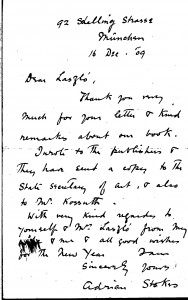 92 Schelling Strasse
München
16 Dec. '09
Dear Laszlo,
Thank you very
much for your letter & kind
remarks about our book.
I wrote to the publishers &
they have sent a copy to the
State Secretary of Art, & also
to Mr. Kossuth.
With very kind regards to
yourself & Mrs. Laszlo from my
& me & all good wishes
for the New Year
Sincerely Yours
Adrian Stokes